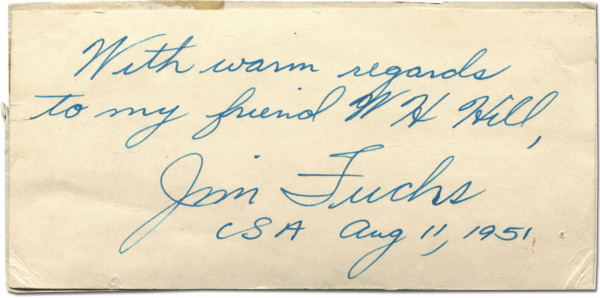 With warm regards
to my friend W H Hill,
Jim Fuchs
USA Aug 11, 1951